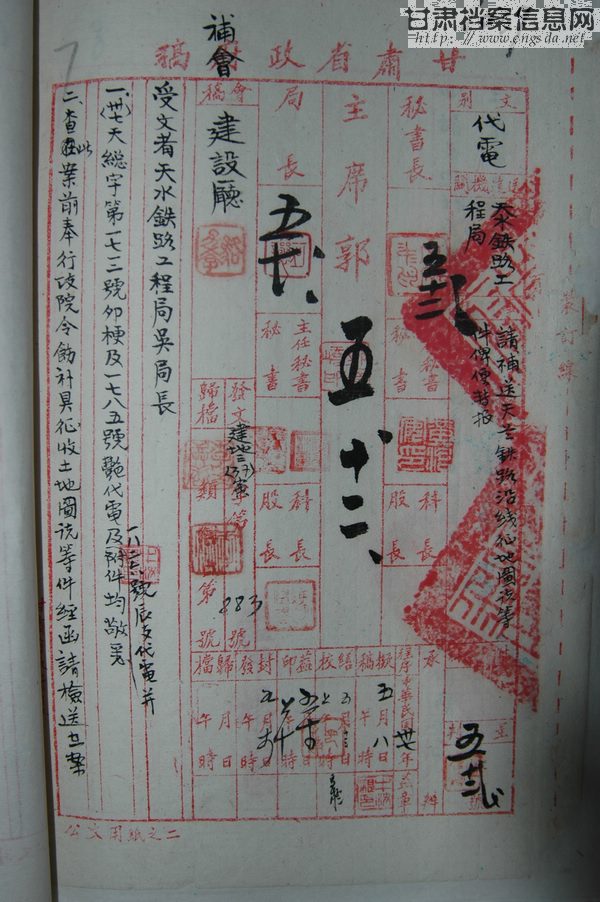 甘肃档案信息网
http://www.engsda.net
甘肅省政府稿
文別
代電
送達機關
天水鉄路工
程局
請補送天蘭鉄路沿线征地圖说等
件俾便封报
秘書長
主席郭
五十二
局長
會稿
補會
建設廳
秘書
主任秘書
秘書
科長
股長
科長
股長
發文
建地三
第
號
歸檔
類
第
號
883
中華民國卅七年
擬稿
五月八日
午時
結校
益印
封發
歸檔
月日
午時
受文者天水鉄路工程局吳局長
一、(卅七)天總字第一七三號卯梗及一七八五號艷代電及附件均敬悉
一八二六號辰支代電并
二、查此案前奉行政院令飭补具征收土地圖说等件經函請檢送在案
公文用紙之二
裝訂線